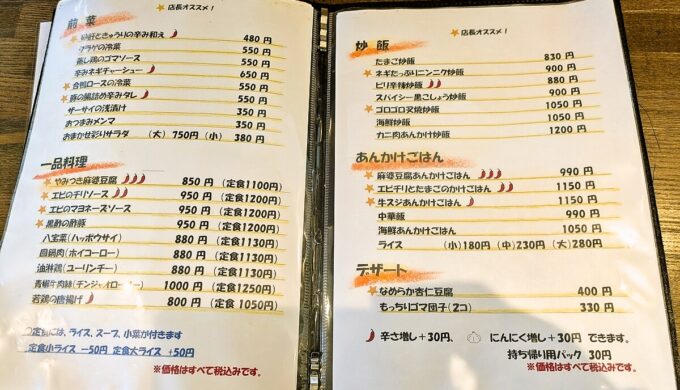 前菜
★店長オススメ！
★砂肝ときゅうりの辛み和え 480円
クラゲの冷菜 550円
蒸し鶏のゴマソース 550円
辛みネギチャーシュー 650円
★合鴨ロースの冷菜 550円
★豚の腸詰め辛みタレ 550円
ザーサイの浅漬け 350円
おつまみメンマ 350円
おまかせ彩りサラダ (大)750円(小) 380円
一品料理
★やみつき麻婆豆腐 850円 (定食1100円)
★エビのチリソース 950円 (定食1200円)
★エビのマヨネーズソース 950円 (定食1200円)
★黒酢の酢豚 950円 (定食1200円)
八宝菜(ハッポウサイ) 880円 (定食1130円)
回鍋肉(ホイコーロー) 880円 (定食1130円)
油淋鶏(ユーリンチー) 880円 (定食1130円)
青椒牛肉絲(チンジャイロース) 1000円 (定食1250円)
若鶏の唐揚げ 800円 (定食1050円)
定食には、ライス、スープ、小菜が付きます
定食小ライス −50円 定食大ライス +50円
※価格はすべて税込みです。
★店長オススメ！
炒飯
たまご炒飯 830円
★ネギたっぷりニンニク炒飯 900円
★ピリ辛辣炒飯 880円
スパイシー黒こしょう炒飯 900円
★ゴロゴロ叉焼炒飯 1050円
海鮮炒飯 1050円
カニ肉あんかけ炒飯 1200円
あんかけごはん
★麻婆豆腐あんかけごはん 990円
★エビチリとたまごのかけごはん 1150円
★牛スジあんかけごはん 1150円
中華飯 990円
海鮮あんかけごはん 1050円
ライス (小)180円(中)230円(大)280円
デザート
★なめらか杏仁豆腐 400円
もっちりゴマ団子(2コ) 330円
辛さ増し+30円、 にんにく増し+30円 できます。
持ち帰り用パック 30円
※価格はすべて税込みです。